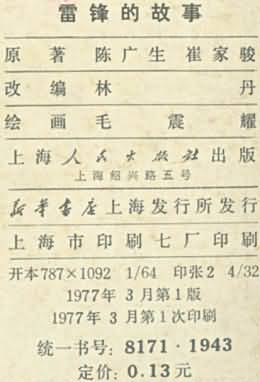 雷锋的故事
原著 陈广生 崔家骏
改编 林丹
绘画 毛震耀
上海人民出版社出版
上海绍兴路五号
新华书店上海发行所发行
上海市印刷七厂印刷
开本787×1092 1/64 印张2 4/32
1977年3月第1版
1977年3月第1次印刷
统一书号：8171·1943
定价：0.13元